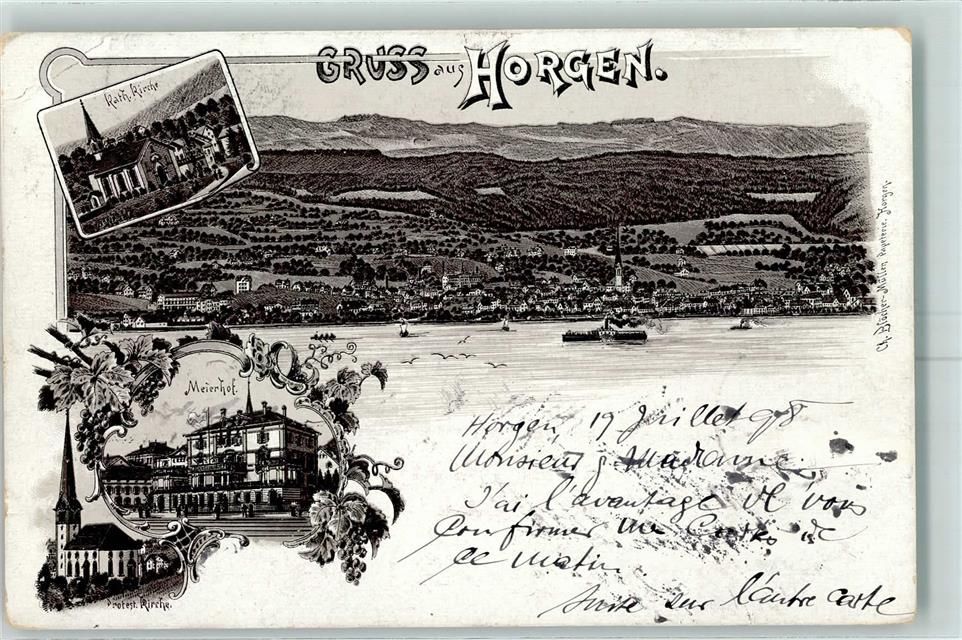 GRUSS aus HORGEN.
Kath. Kirche
Meierhof.
Protest. Kirche.
Ch. Papeterie. Horgen.
Horgen, 19 Juillet 98
Monsieur & Madame,
J'ai l'avantage de vous
Confirmer ma Carte de
ce matin
Suite sur l'autre carte